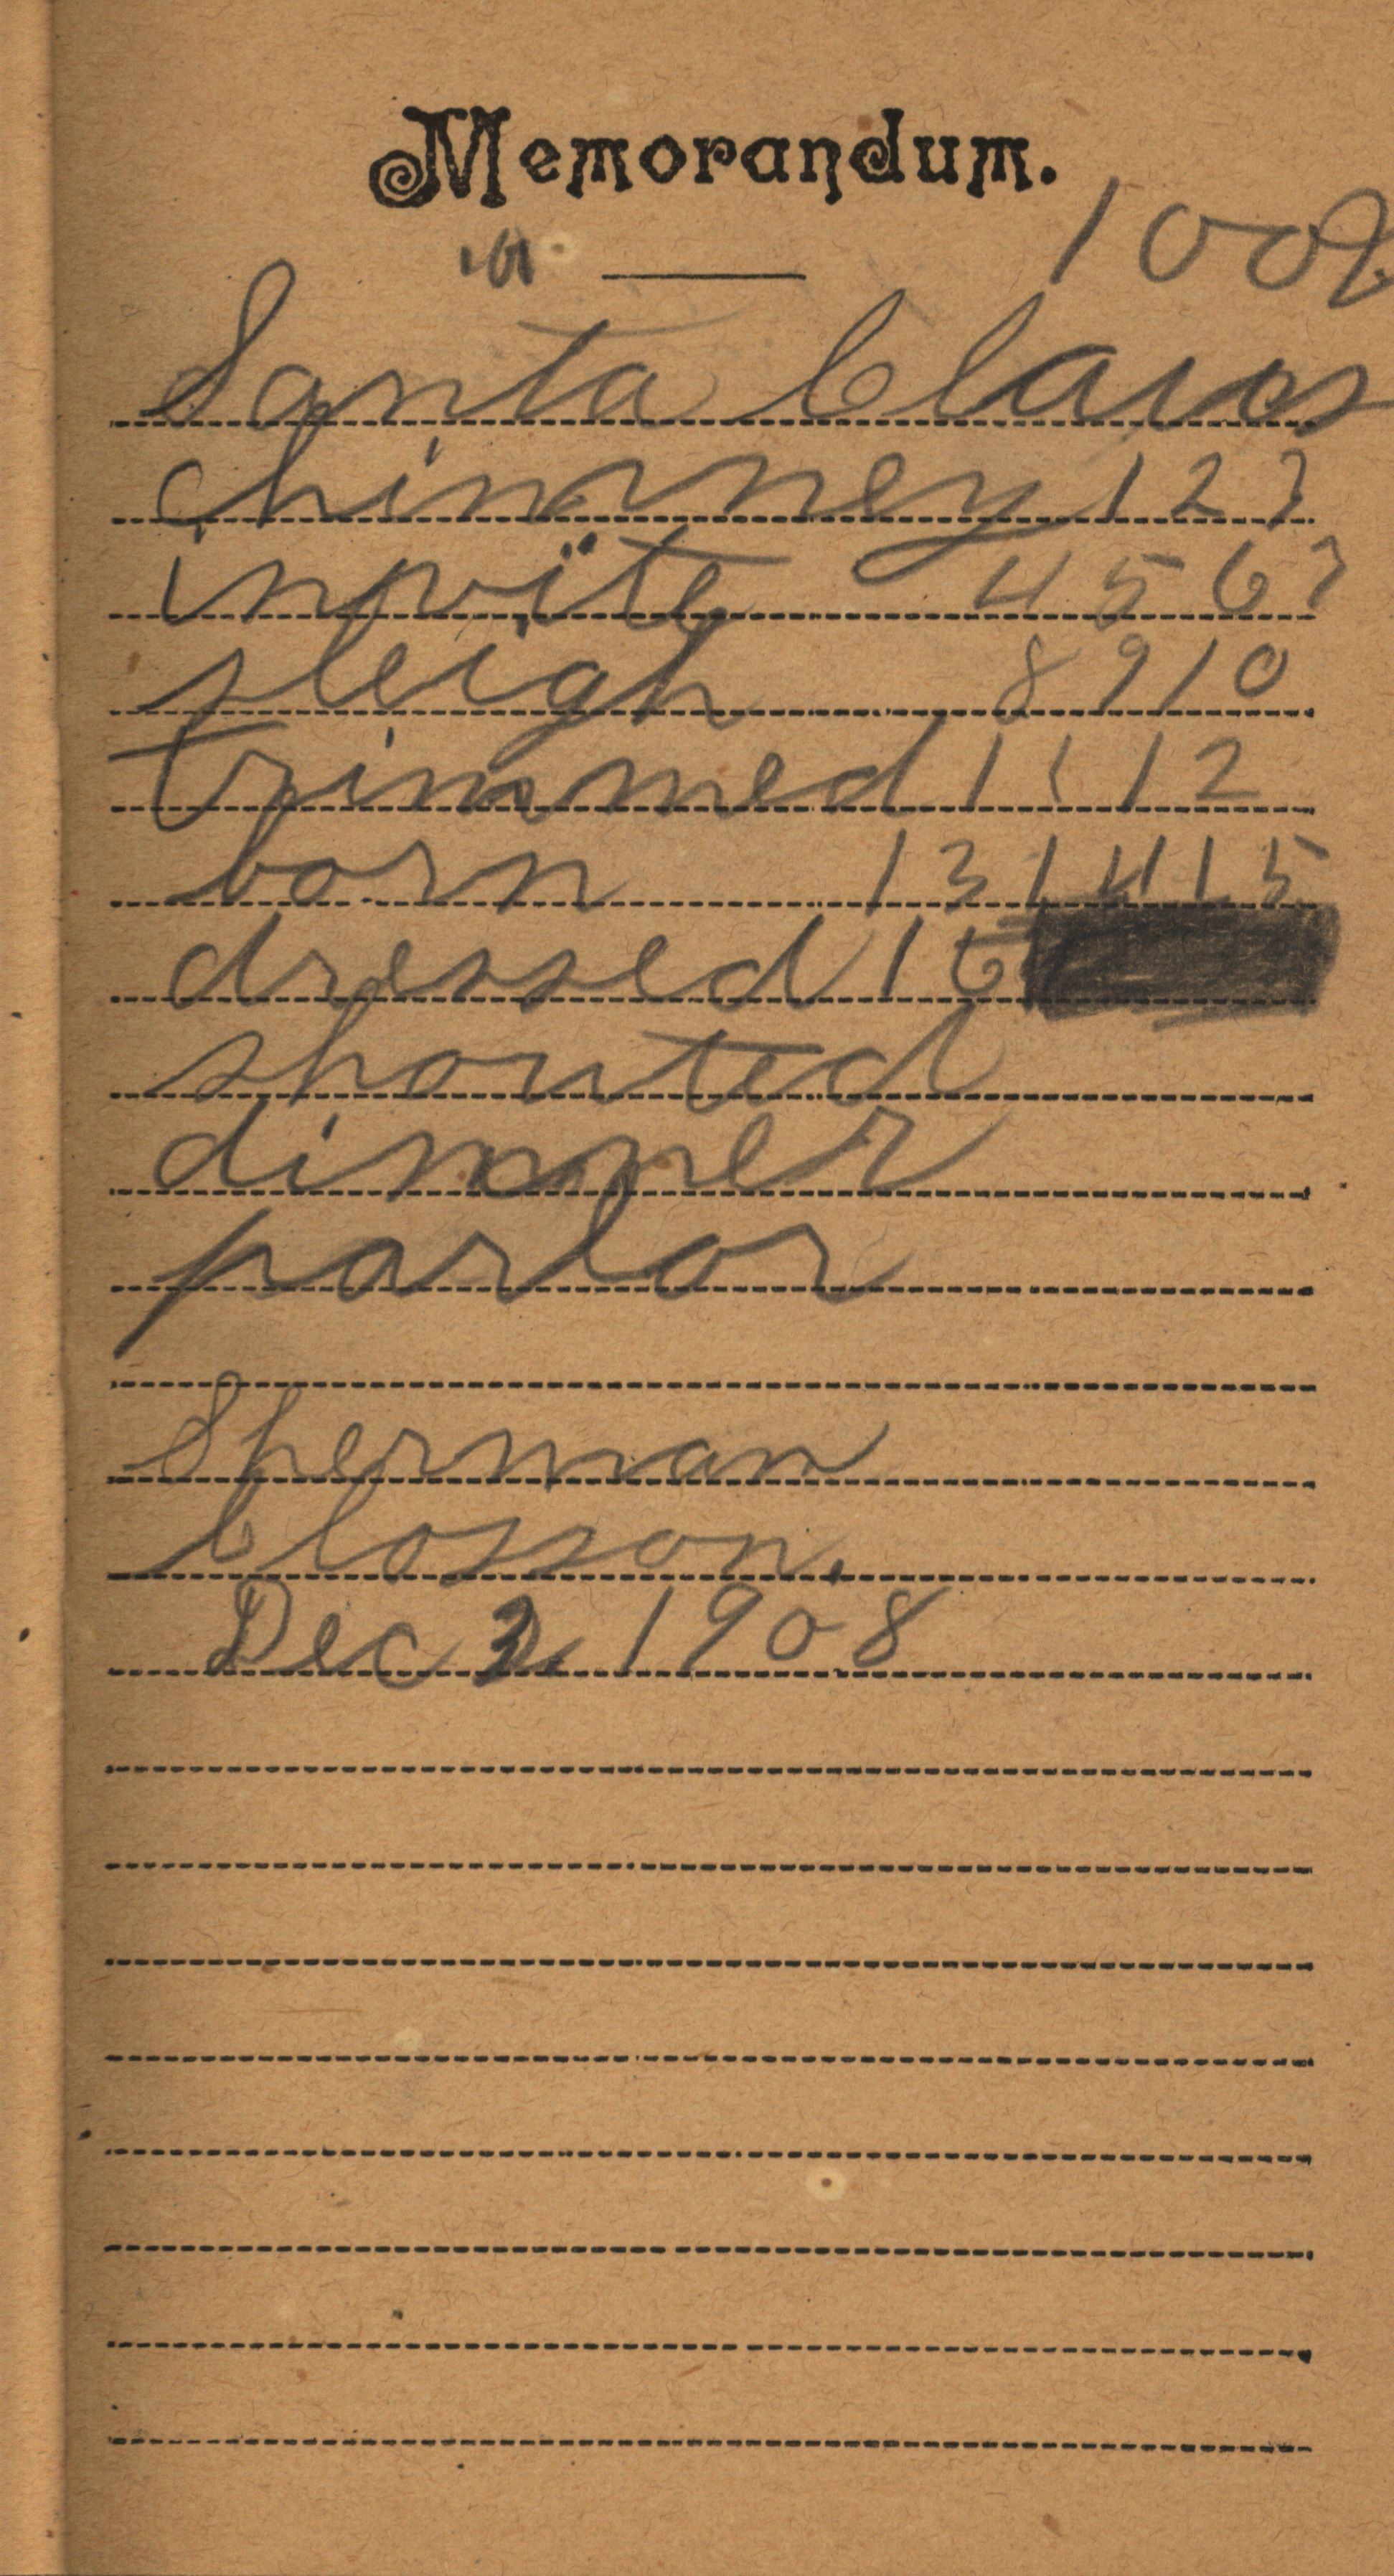 Memorandum.
100%
Santa Claus
chimney 1 2 3
invite 4 5 6 7
sleigh 8 9 10
trimmed 11 12
born 13 14 15
dressed 16
shouted
dinner
parlor
Sherman
Closson.
Dec 2, 1908